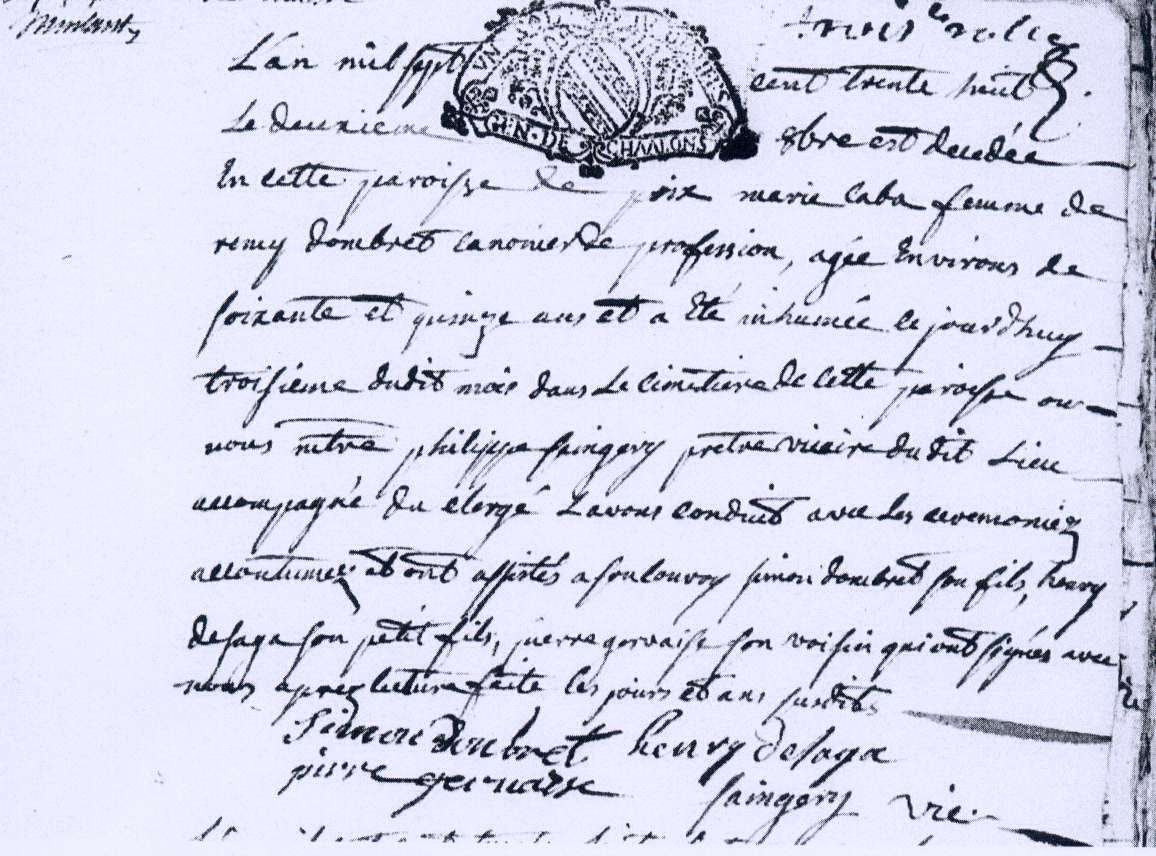 trois
L'an mil sept cent trente huit
GEN. DE CHAALONS
Le deuxieme 8bre est decedée
En cette paroisse de poix marie Caba femme de
remy dombret canonier de profession, agée Environs de
soixante et quinze ans et a Eté inhumée ce jourdhuy
troisieme dudit mois dans Le cimetiere de cette paroisse ou
nous philippe saingery pretre vicaire du dit Lieu
accompagné du clergé Lavons conduit avec Les ceremonies
accoutumees et ont assistés a son convoy simon dombret son fils, henry
desaga son petit fils, pierre gervaise son voisin qui ont signés avec
nous aprez lecture faite les jours et ans susdits
Simon donbret henry desaga
pierre gervaise saingery vic.